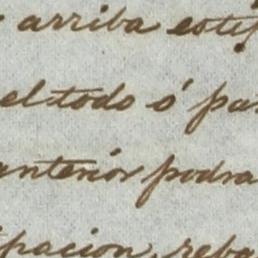 arriba estip
el todo ó par
anterior podra
ipacion, reba